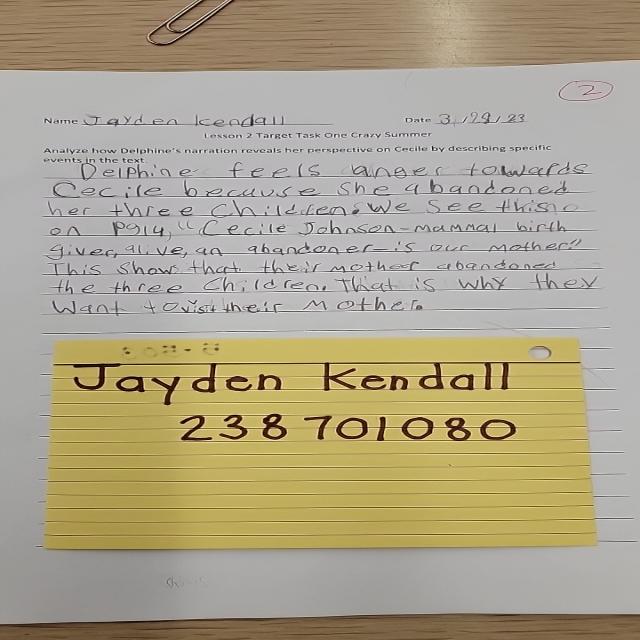 2
Name Jayden Kendall Date 3/29/23
Lesson 2 Target Task One Crazy Summer
Analyze how Delphine's narration reveals her perspective on Cecile by describing specific
events in the text.
Delphine feels anger towards
Cecile because she abandoned
her three Children. We see this
on pg14, "Cecile Johnson-mammal birth
giver, alive, an abandoner-is our mother."
This shows that their mother abandoned
the three Children. That is why they
want to visit their Mother.
Jayden Kendall
238701080